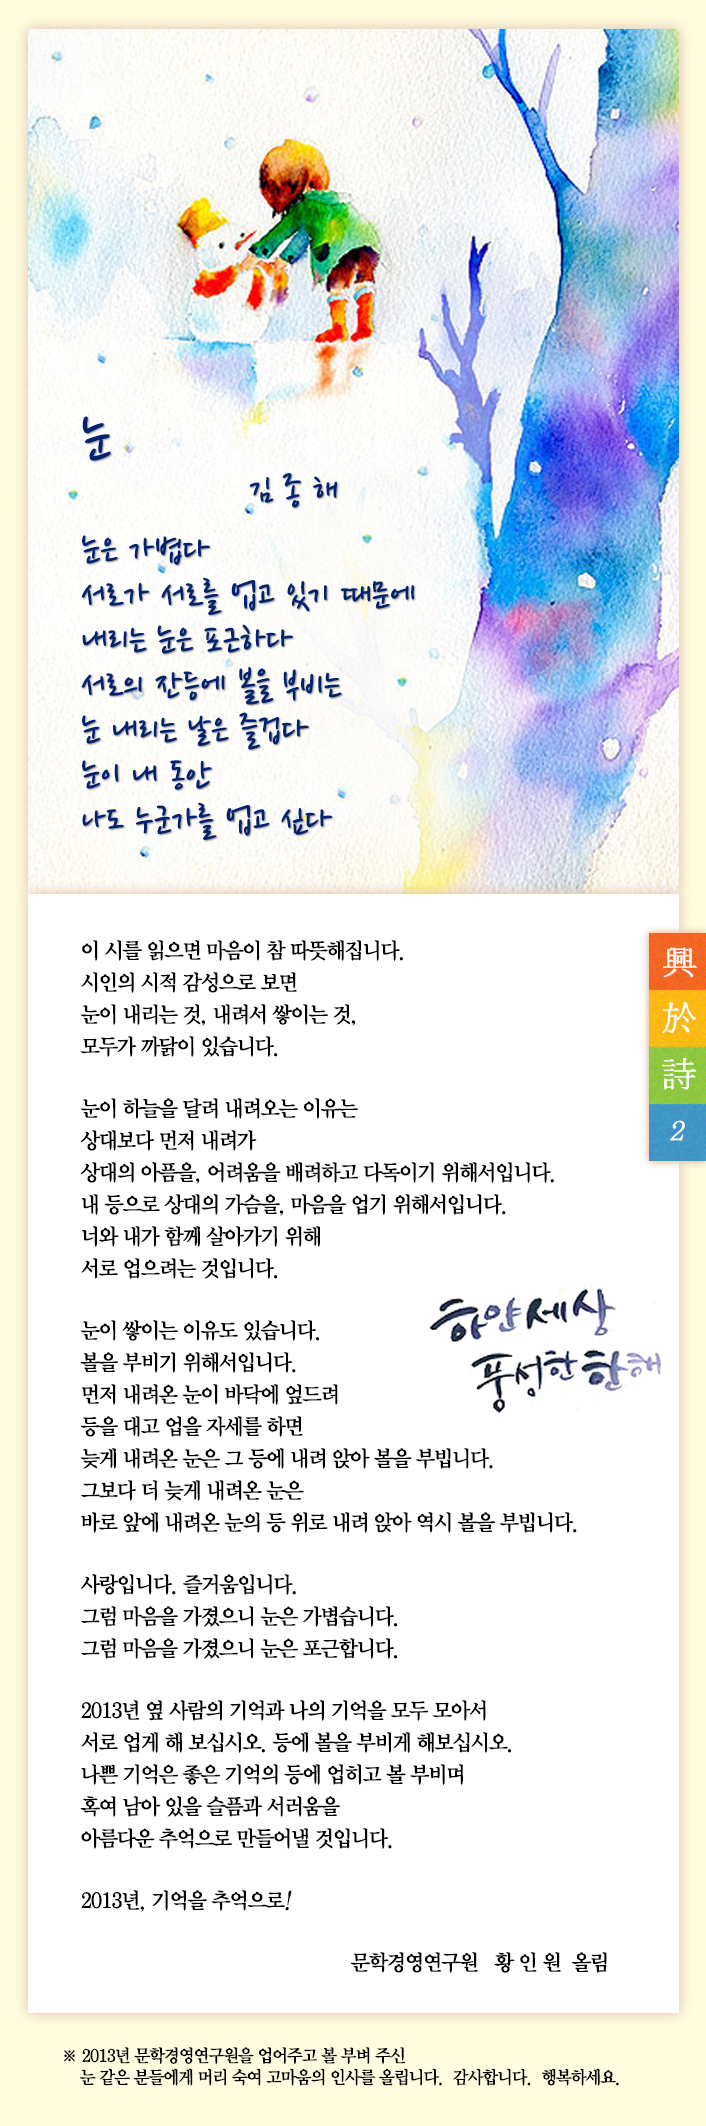 눈
김종해
눈은 가볍다
서로가 서로를 업고 있기 때문에
내리는 눈은 포근하다
서로의 잔등에 볼을 부비는
눈 내리는 날은 즐겁다
눈이 내 동안
나도 누군가를 업고 싶다
이 시를 읽으면 마음이 참 따뜻해집니다.
시인의 시적 감성으로 보면
눈이 내리는 것, 내려서 쌓이는 것,
모두가 까닭이 있습니다.
눈이 하늘을 달려 내려오는 이유는
상대보다 먼저 내려가
상대의 아픔을, 어려움을 배려하고 다독이기 위해서입니다.
내 등으로 상대의 가슴을, 마음을 업기 위해서입니다.
너와 내가 함께 살아가기 위해
서로 업으려는 것입니다.
눈이 쌓이는 이유도 있습니다.
볼을 부비기 위해서입니다.
먼저 내려온 눈이 바닥에 엎드려
등을 대고 업을 자세를 하면
늦게 내려온 눈은 그 등에 내려 앉아 볼을 부빕니다.
그보다 더 늦게 내려온 눈은
바로 앞에 내려온 눈의 등 위로 내려 앉아 역시 볼을 부빕니다.
사랑입니다. 즐거움입니다.
그럼 마음을 가졌으니 눈은 가볍습니다.
그럼 마음을 가졌으니 눈은 포근합니다.
2013년 옆 사람의 기억과 나의 기억을 모두 모아서
서로 업게 해 보십시오. 등에 볼을 부비게 해보십시오.
나쁜 기억은 좋은 기억의 등에 업히고 볼 부비며
혹여 남아 있을 슬픔과 서러움을
아름다운 추억으로 만들어낼 것입니다.
2013년, 기억을 추억으로!
문학경영연구원 황인원 올림
興
於
詩
2
하얀세상
풍성한 한해
※ 2013년 문학경영연구원을 업어주고 볼 부벼 주신
눈 같은 분들에게 머리 숙여 고마움의 인사를 올립니다. 감사합니다. 행복하세요.